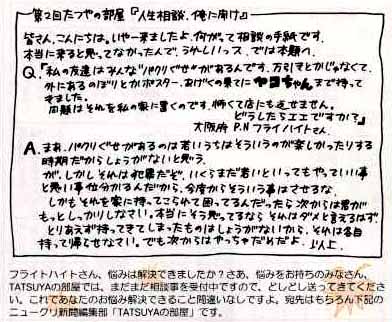 第2回たつやの部屋『人生相談、俺に向け』
皆さん、こんにちは。いやー来ましたよ、何がって相談の手紙です。
本当に来ると思ってなかったんで、うれしいっス。では本題へ。
Q.「私の友達はみんな"パクリぐせ"があるんです。万引きとかじゃなくて、
外にあるのぼりとかポスター、あげくの果てに ちゃんまで持って
きました。
問題はそれを私の家に置くのです。怖くて店にも返せません。
どうしたらエエですか?」
大阪府 P.N フライトハイトさん
A. まあ、パクリぐせがあるのは若いうちはそういうのが楽しかったりする
時期だからしょうがないと思う。
が、しかしそれは犯罪だぞ。いくらまだ若いといってもやっていい事
と悪い事位分かるんだから、今度からそういう事はさせるな。
しかもそれを家に持ってこられて困ってるんだったら次からは君が
もっとしっかりしなさい。本当にそう思ってるなら それはダメと言えるはず。
とりあえず持ってきてしまったものはしょうがないから、それは各自
持って帰らせなさい。でも次からはやっちゃだめだよ。以上。
フライトハイトさん、悩みは解決できましたか?さあ、悩みをお持ちのみなさん、
TATSUYAの部屋では、まだまだ相談事を受付中ですので、どしどし送ってきてくださ
い。これであなたのお悩み解決できること間違いなしですよ。宛先はもちろん下記の
ニュークリ新聞編集部「TATSUYAの部屋」です。